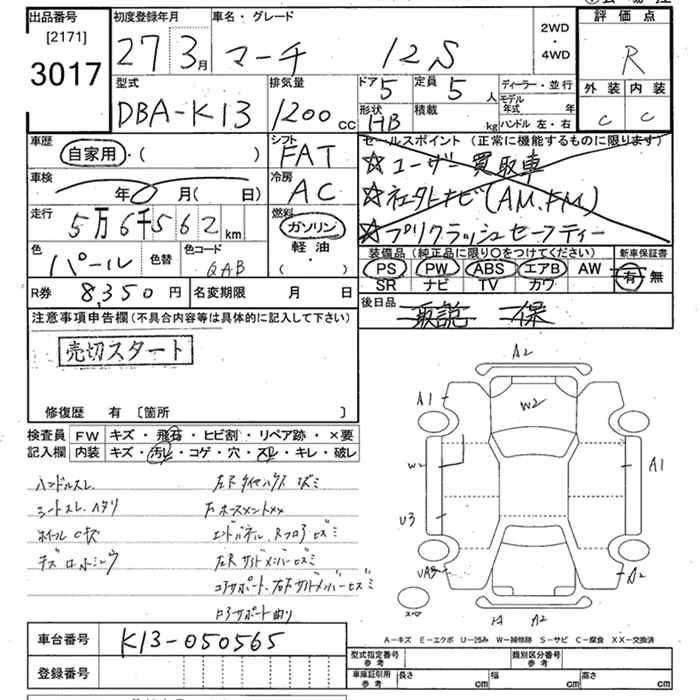 出品番号
[2171]
3017
初度登録年月
27 3月
車名・グレード
マーチ 12S
2WD
・
4WD
評価点
R
外装 内装
C C
型式
DBA-K13
排気量
1200 cc
ドア 5
定員 5 人
形状 HB
積載 kg
ディーラー・並行
モデル年式 年
ハンドル 左・右
車歴
自家用・( )
シフト
FAT
車検
年 0 月( 日)
冷房
AC
走行
5万6千562 km
燃料
ガソリン
軽油・
( )
色
パール
色替
色コード
QAB
R券 8,350 円
名変期限 月 日
セールスポイント(正常に機能するものに限ります)
☆ユーザー買取車
☆社外ナビ(AM.FM)
☆プリクラッシュセーフティー
装備品(純正品に限り○をつけてください)
PS PW ABS エアB AW
SR ナビ TV カワ
新車保証書
有 無
後日品
取説 保
注意事項申告欄(不具合内容等は具体的に記入して下さい)
売切スタート
修復歴 有 [箇所 ]
検査員
記入欄
FW キズ・飛石・ヒビ割・リペア跡・×要
内装 キズ・汚レ・コゲ・穴・スレ・キレ・破レ
ハンドルスレ
シートスレ、ヘタリ
ホイールCキズ
エンドパネル、Rフロアヒズミ
左Rサイドメンバーヒズミ
コアサポート、右Fサイドメンバーヒズミ
A2
W2
A1
W2
A1
U3
A2
スペア
A2
A-キズ E-エクボ U-凹み W-補修跡 S-サビ C-腐食 XX-交換済
車台番号
K13-050565
登録番号
型式指定番号
参考
類別区分番号
参考
車庫証明用
参考
長さ cm
幅 cm
高さ cm